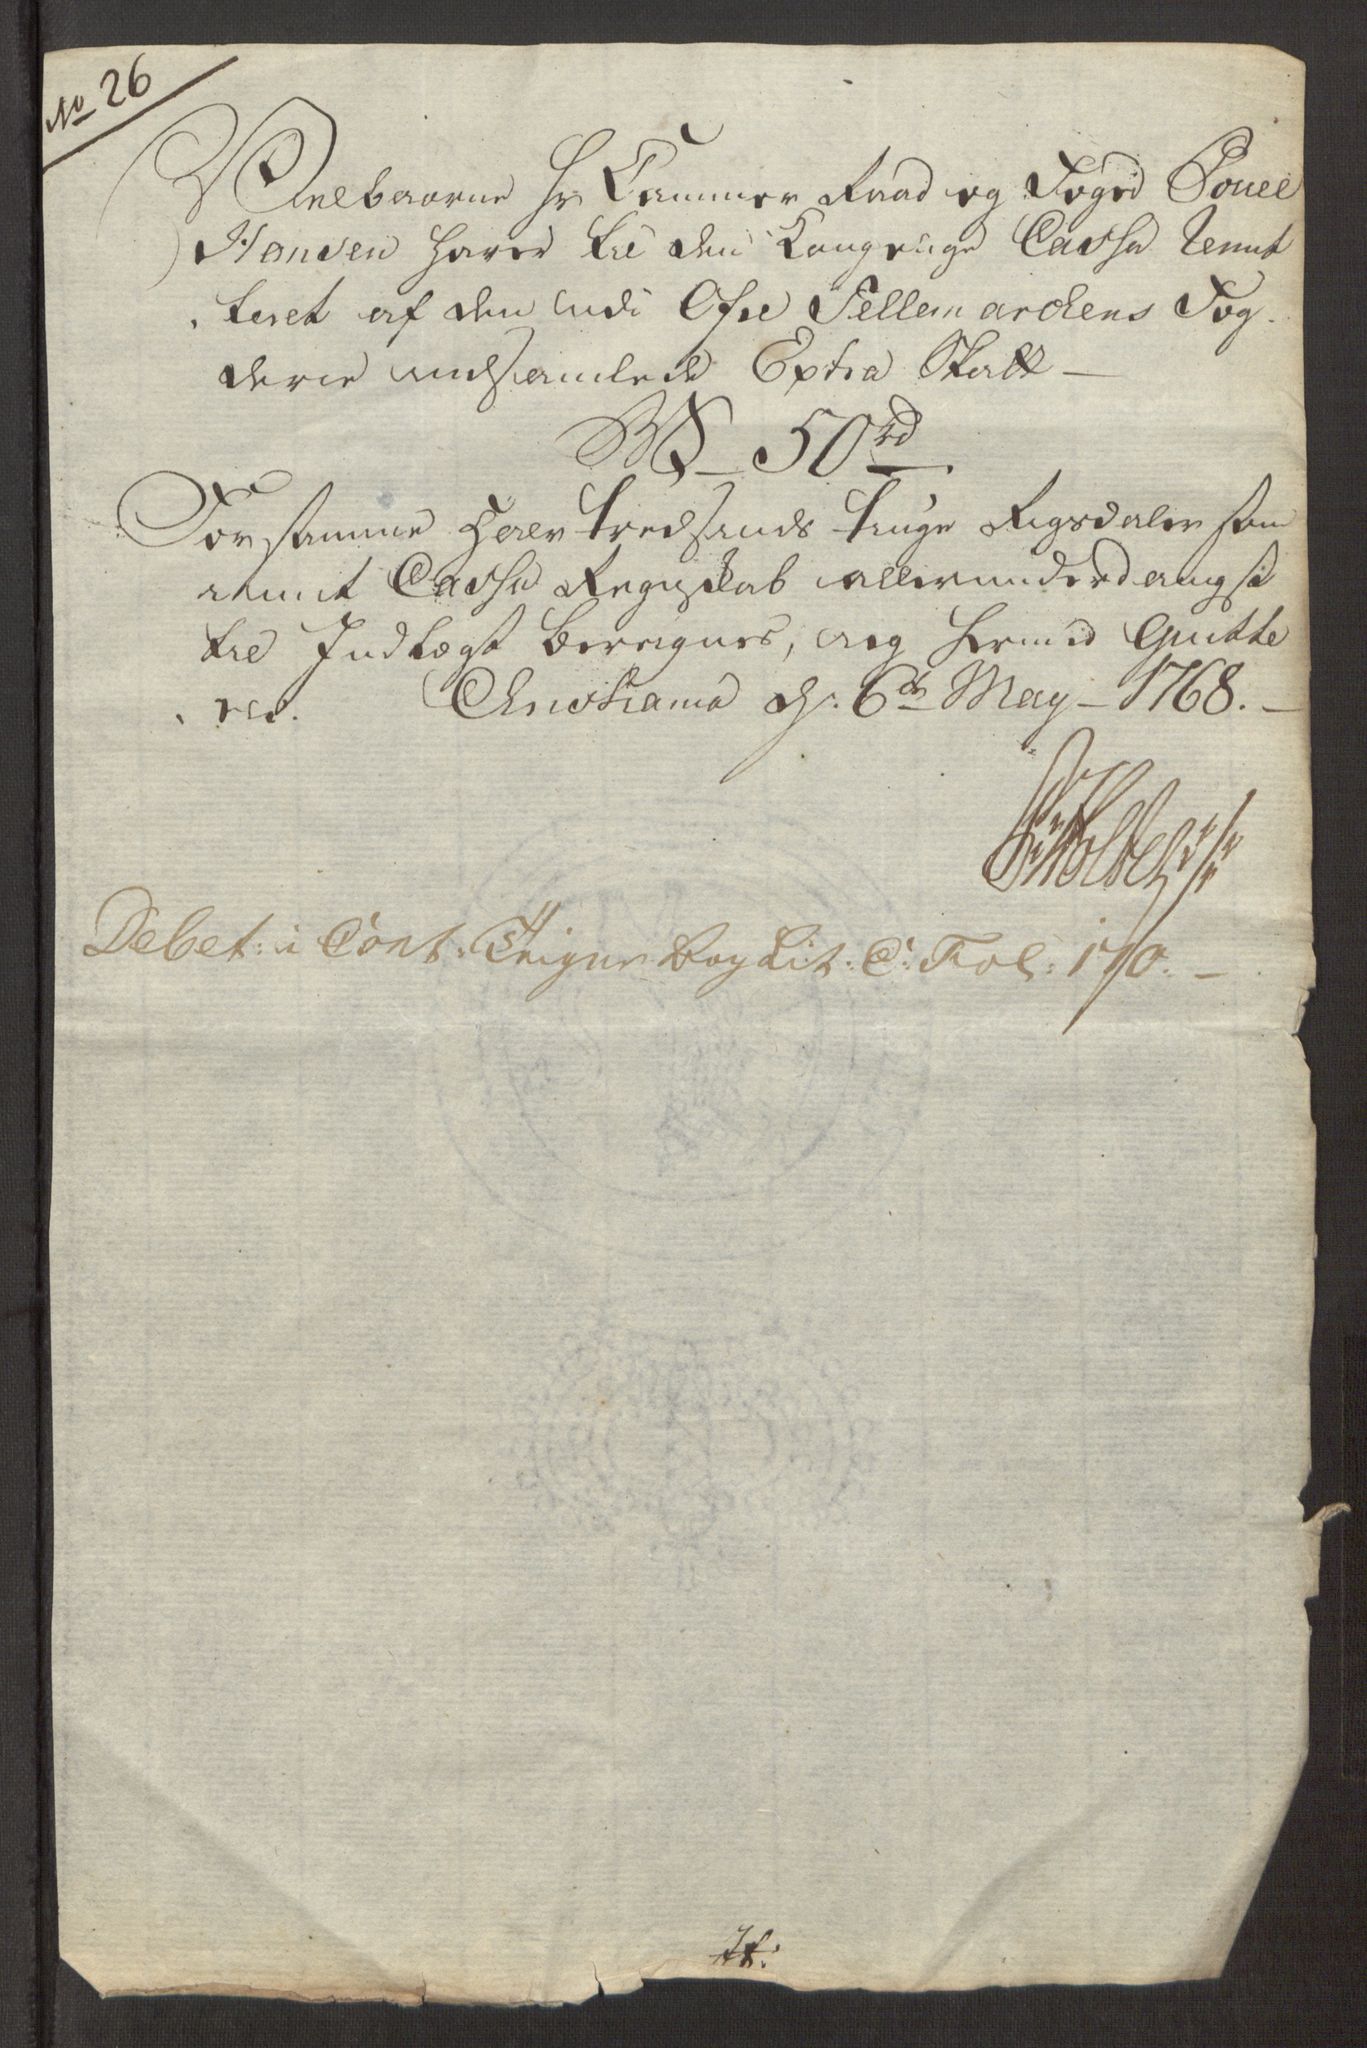 No 26
Velbaarne Hr Cammer Raad og Foged Povel
Hansen haver til den Kongelige Cassa Remit
teret af den udi Øfre Tellemarckens Fog
derie indsamlede Extra Skatt —
50 rd
For samme halv tredsinds tiuge Rigsdaler som
i mit Cassa Regnskab allerunderdanigst
til Indtægt beregnes, vorder hermed Qvitte
ret. Christiania d: 6te May - 1768. —
Debet: i Cont: Skriver bog Lit: C: Fol: 170. —